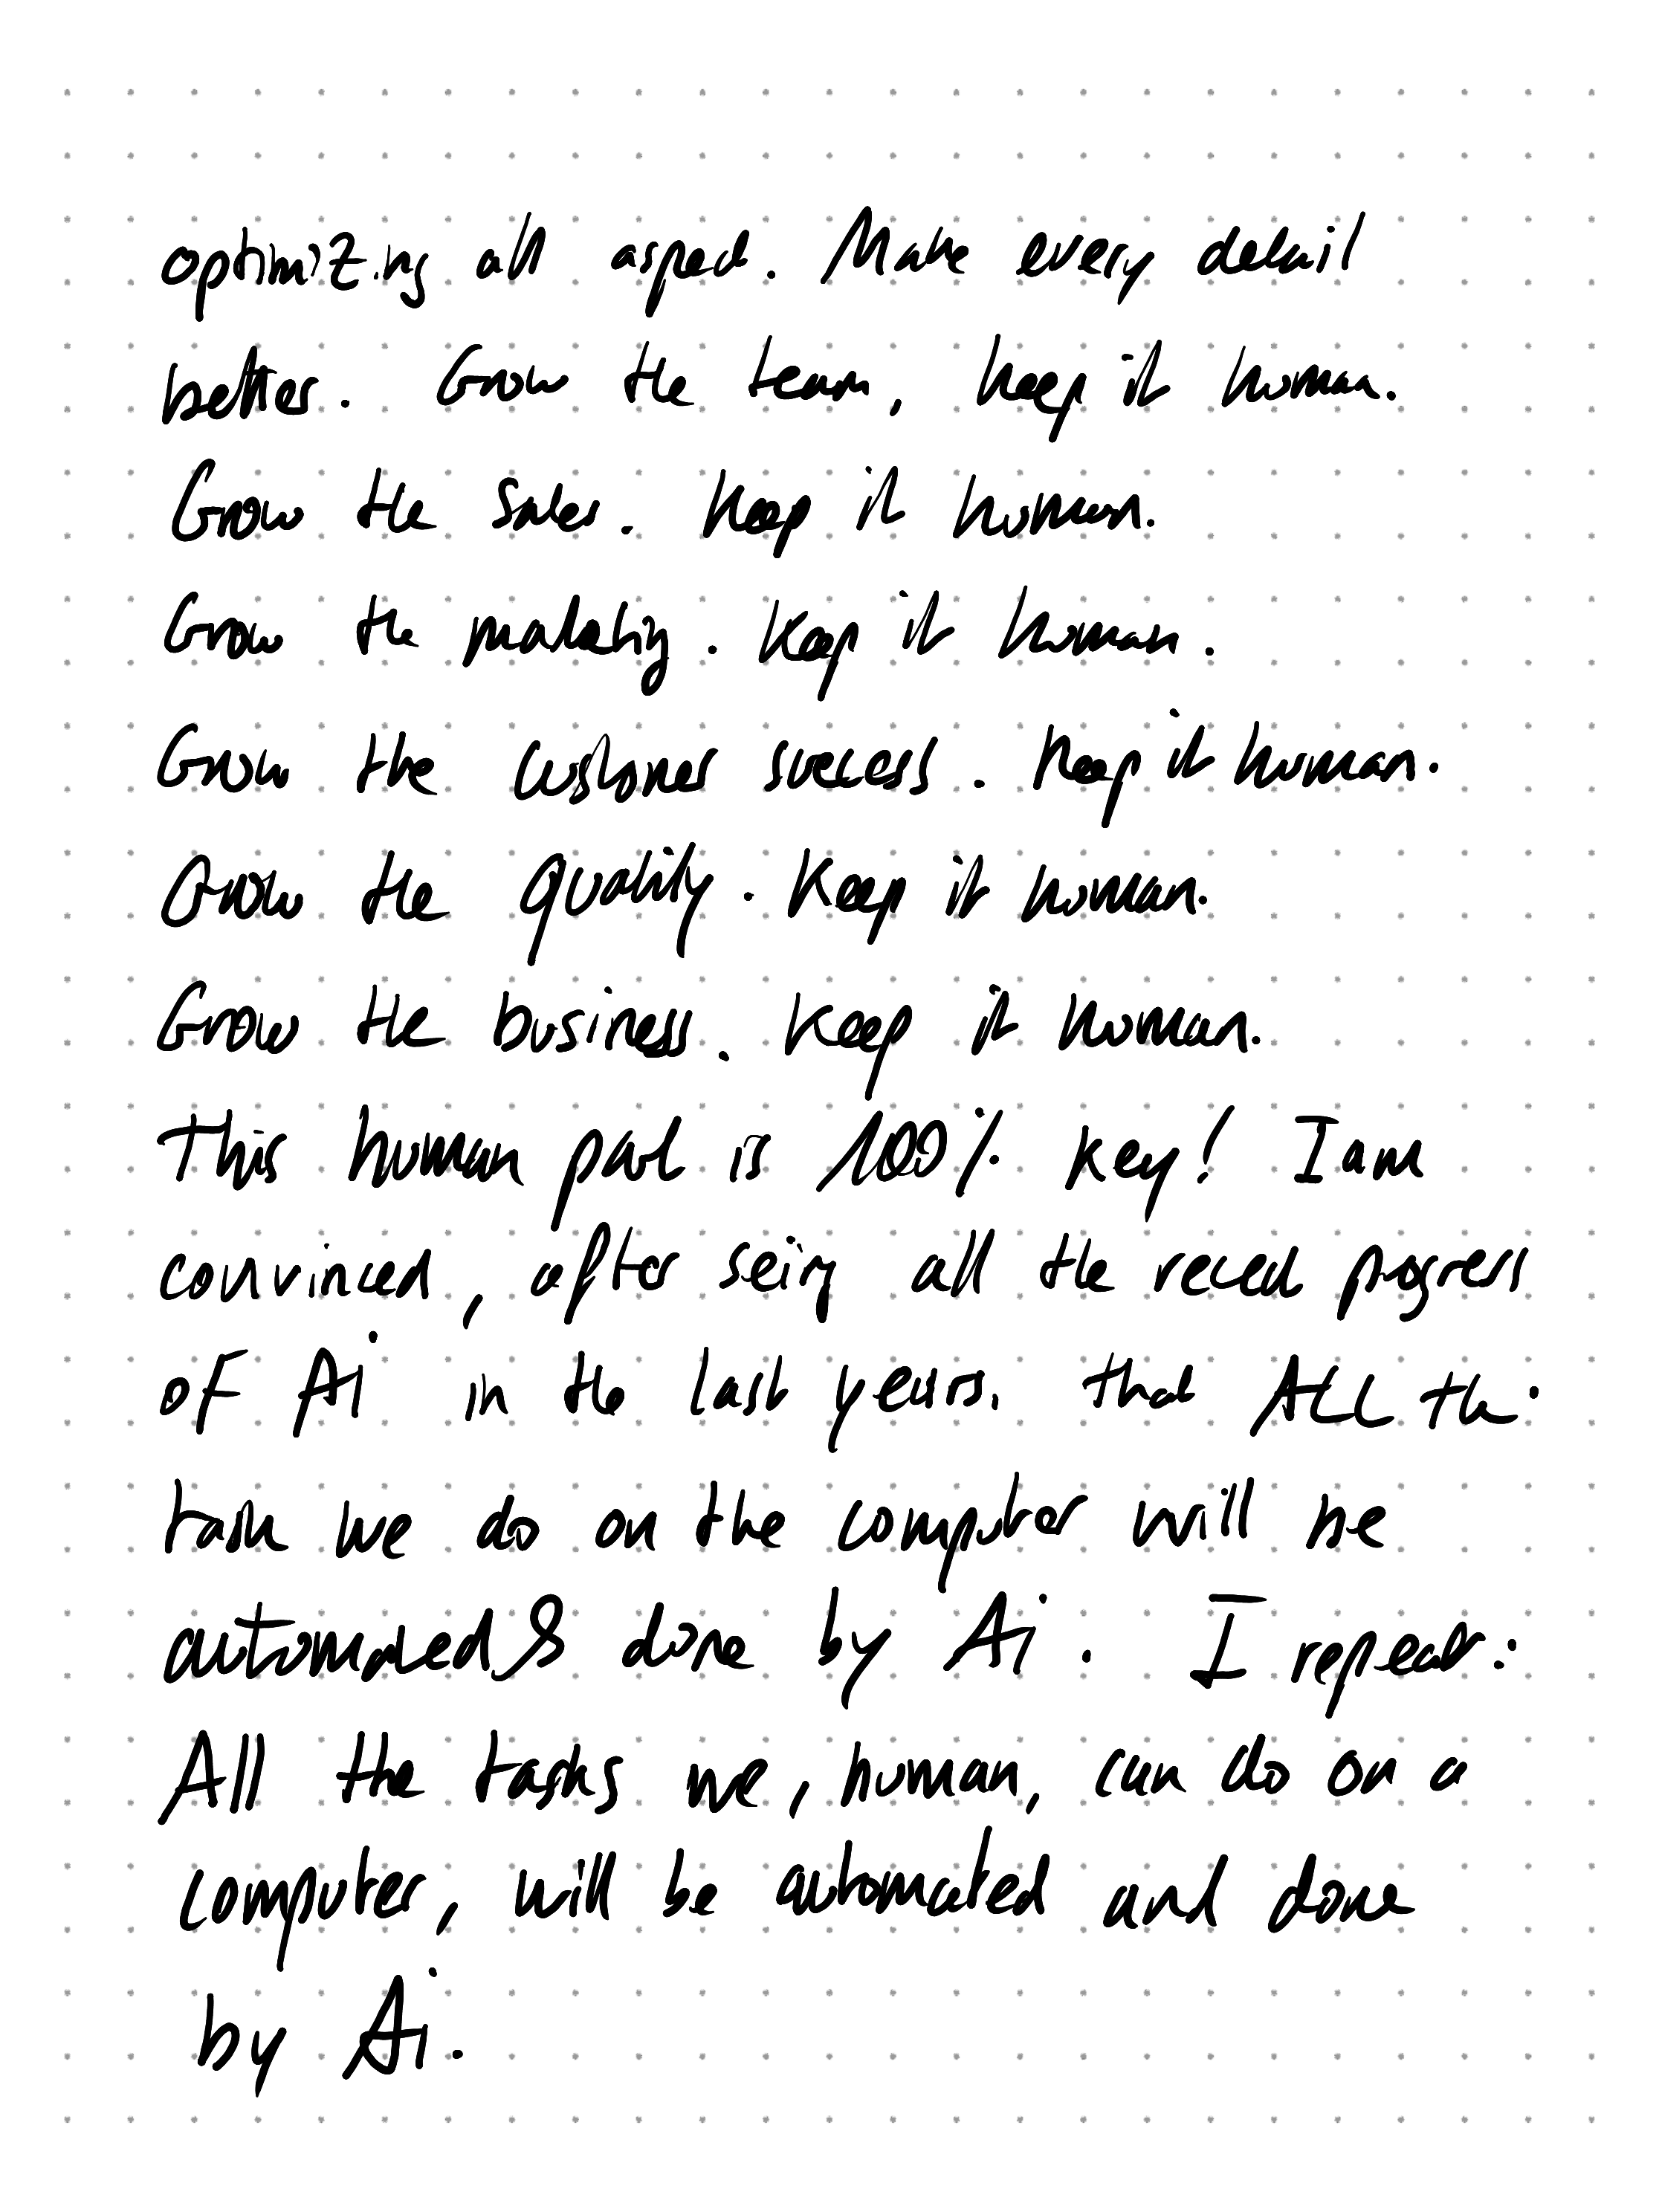 optimizing all aspect. Make every detail
better. Grow the team, keep it human.
Grow the sales. Keep it human.
Grow the marketing. Keep it human.
Grow the customer success. Keep it human.
Grow the quality. Keep it human.
Grow the business. Keep it human.
This human part is 100% key! I am
convinced, after seing all the recent progress
of Ai in the last years, that ALL the
task we do on the computer will be
automated & done by Ai. I repeat:
All the tasks we, human, can do on a
computer, will be automated and done
by Ai.